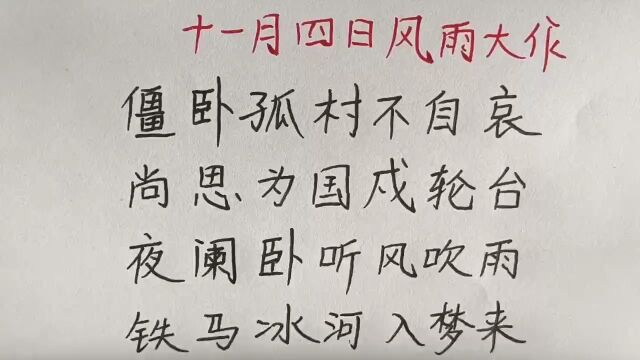 十一月四日风雨大作
僵卧孤村不自哀
尚思为国戍轮台
夜阑卧听风吹雨
铁马冰河入梦来